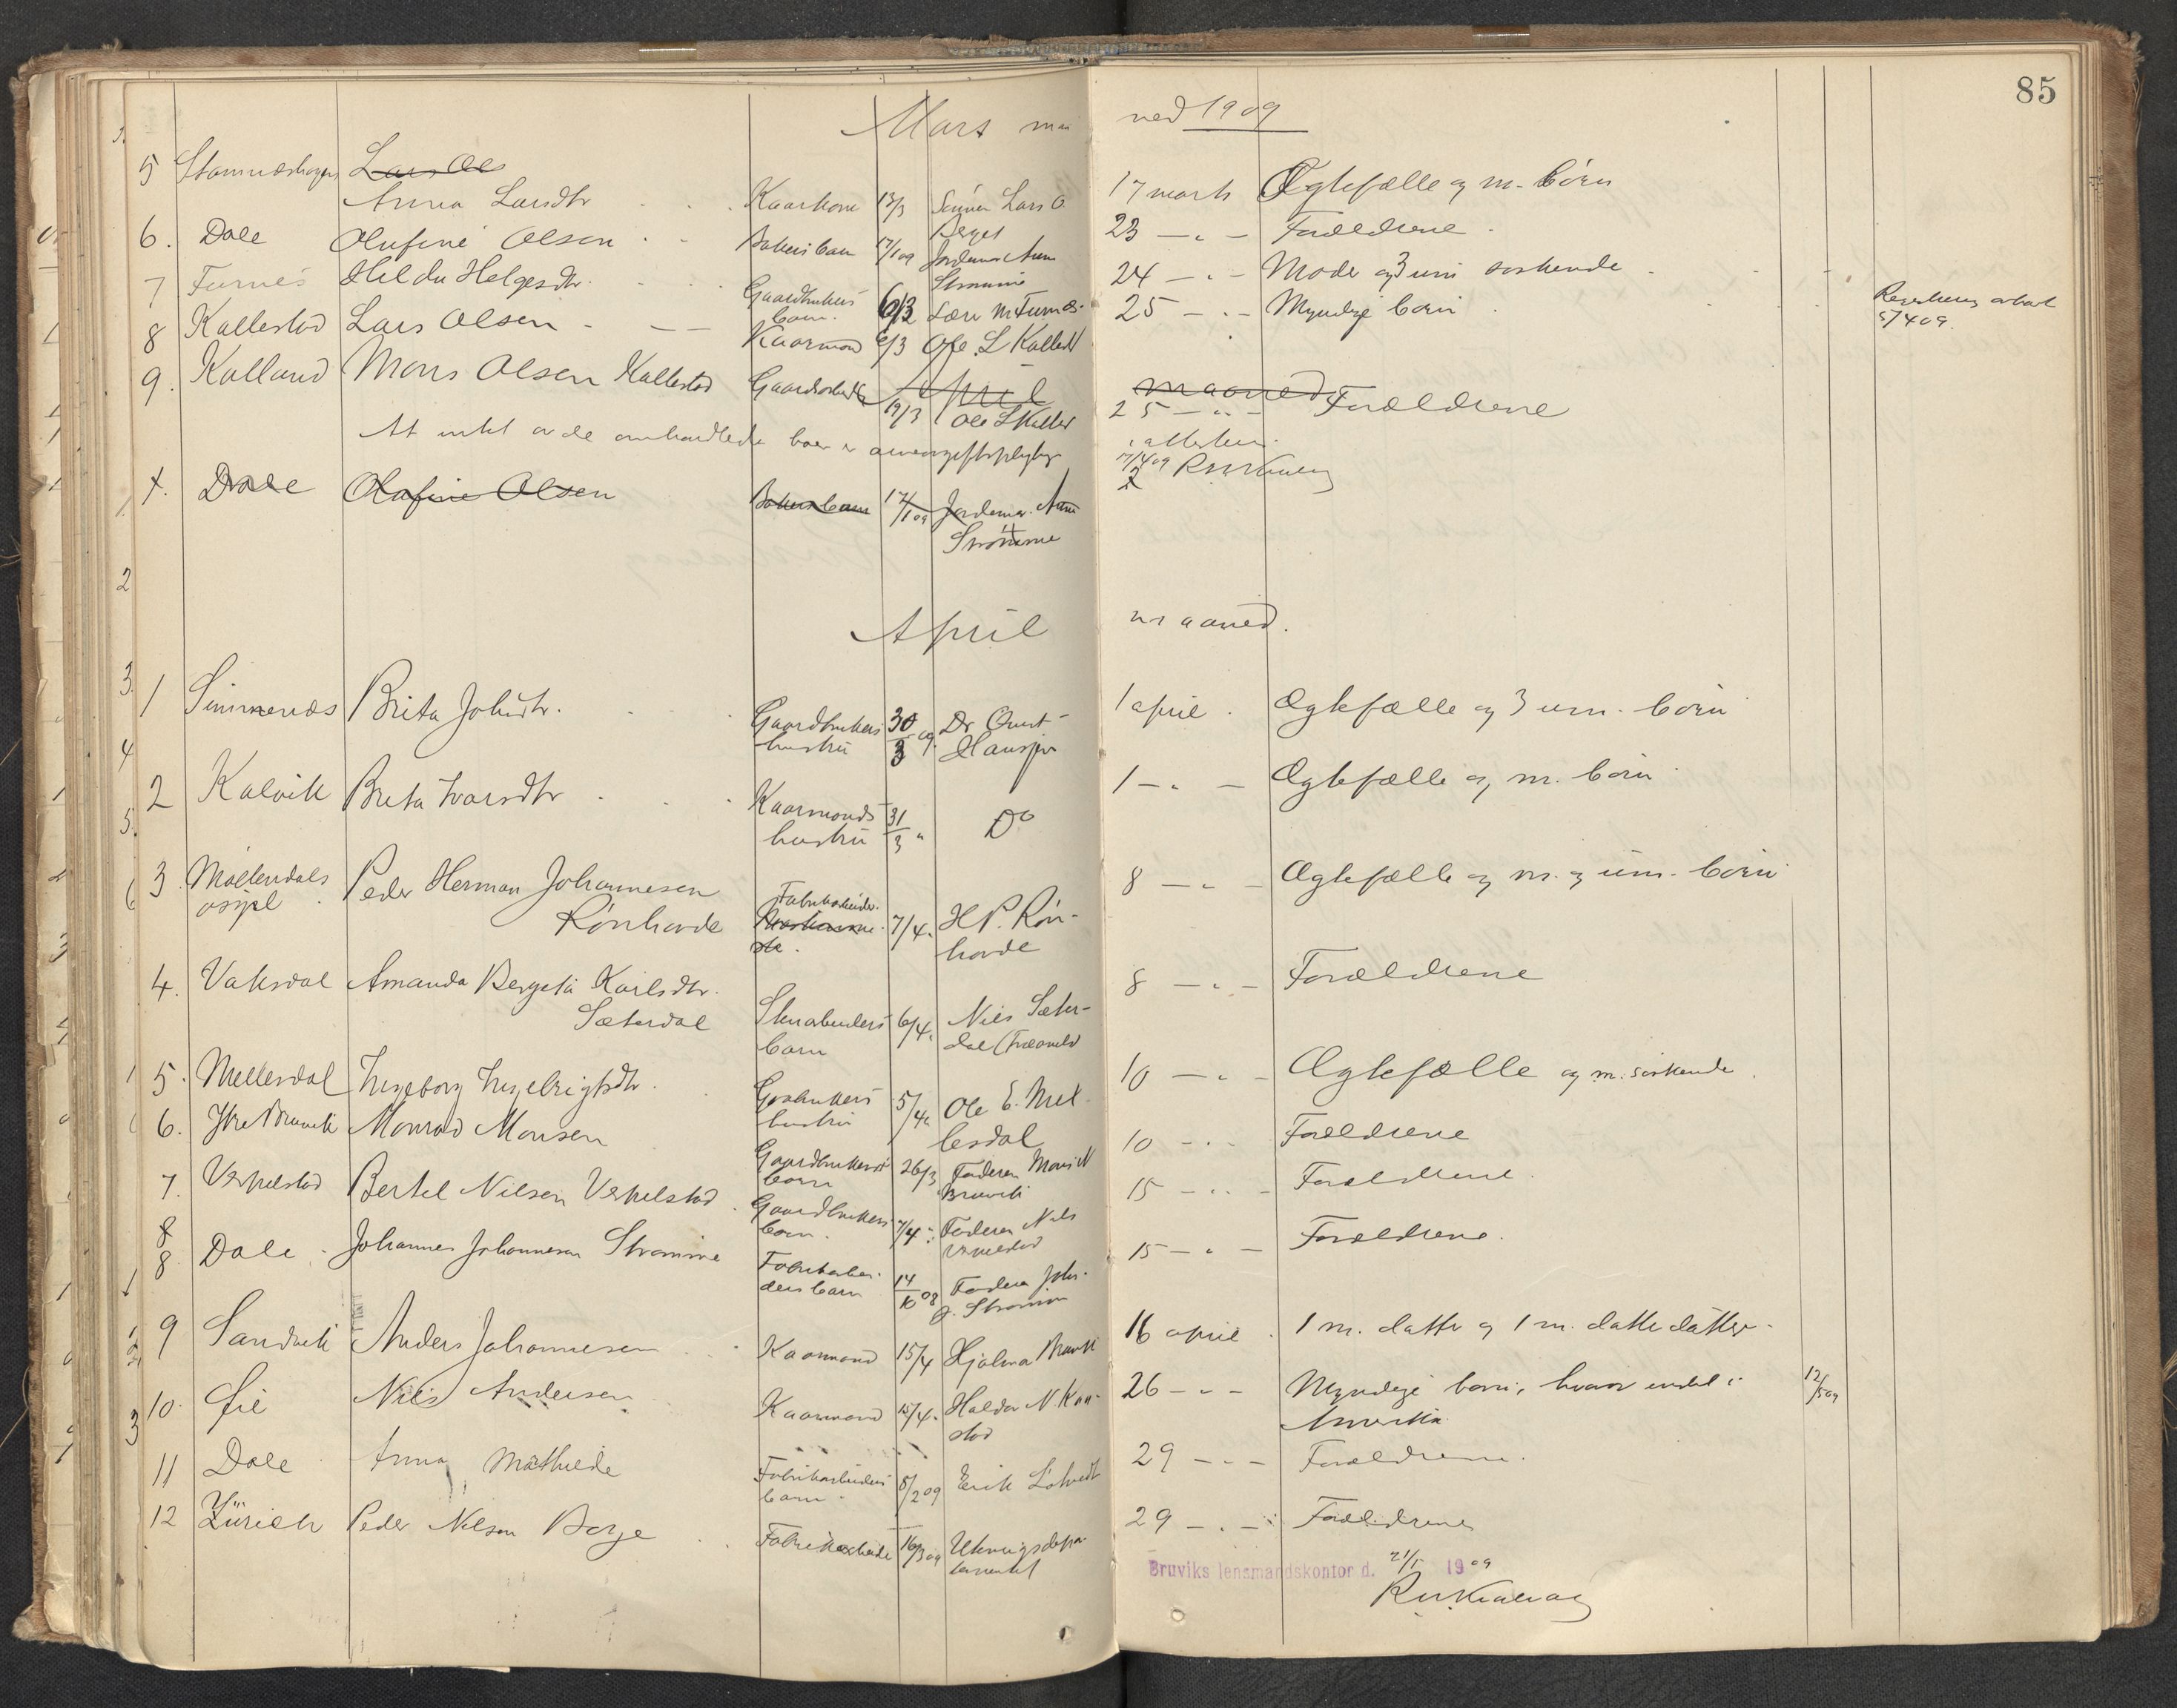 85
Mars maaned 1909
5 Stamneshagen Lars Ols
Anna Larsdtr Kaarkone 13/3 Sønnen Lars O. Berget 17 marts Ægtefælle og m. børn
6. Dale Olufine Olsen Bakers barn 17/1 09 Jordemor Anna Strømme 23 Forældrene
7 Furnes Hilda Helgesdtr. Gaardbrukers barn 6/3 Lærer M Furnes 24 Moder og 3 um søskende
8 Kallestad Lars Olsen Kaarmand 6/3 Ole L Kallestd 25 Myndige børn
5/4 09.
9. Kalland Mons Olsen Kallestad Gaardarbeider 19/3 Ole L Kallest 25 Forældrene
April maaned
At intet av de omhandlede boer er arveavgiftspligtige
attesteres
17/4 09
1. Dale Olafine Olsen Bakers barn 17/1 09 Jordemor Anna Strømme
2
April maaned.
1 Simmenæs Brita Johsdtr. Gaardbrukers hustru 30/3 09 Dr Qvist Hansen 1 april Ægtefælle og 3 um. børn
2 Kalvik Brita Ivarsdtr Kaarmands hustru 31/3 Do 1 Ægtefælle og m. børn
3 Møllendals asyl Peder Herman Johannesen Rønhovde Fabrikarbeider 7/4 H P. Rønhovde 8 Ægtefælle og m. og um. børn
4. Vaksdal Amanda Bergeta Karlsdtr. Sæterdal Stenarbeiders barn 6/4 Nils Sæterdal 8 Forældrene
5. Mellesdal Ingeborg Ingebrigtsdtr. Grbrukers hustru 5/4 Ole E. Mellesdal 10 Ægtefælle og m. søskende
6. Ytre Bruvik Monrad Monsen Gaardbrukers barn 26/3 Faderen Mons N Bruvik 10 Forældrene
7. Veskelstad Bertel Nilsen Veskelstad Gaardbrukers barn 7/4 Faderen Nils 15 Forældrene
8
8 Dale Johannes Johannesen Strømme Fabrikarbeiders barn 14/10 08 Faderen Johs. J. Strømme 15 Forældrene.
9 Sandvik Anders Johannesen Kaarmand 15/4 Hjalmar Bruvik 16 april 1 m. datter og 1 m. datterdatter.
10. Øie Nils Andersen Kaarmand 15/4 Haldor N. 26 Myndige børn, hvorav endel i Amerika 12/5 09
11 Dale Anna Mathilde Fabrikarbeiders barn 8/2 09 Erik 29 Forældrene.
12 Zürich Peder Nilsen Borge Fabrikarbeider 16/3 09 Utenrigsdepartementet 29 Forældrene
Bruviks lensmandskontor d. 21/5 1909